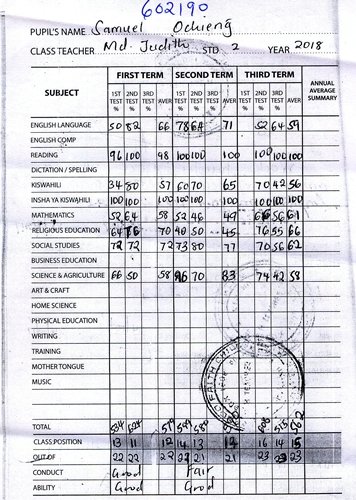 602190
PUPIL'S NAME Samuel Ochieng
CLASS TEACHER Md. Judith STD 2 YEAR 2018
SUBJECT FIRST TERM SECOND TERM THIRD TERM ANNUAL AVERAGE SUMMARY
1ST TEST % 2ND TEST % 3RD TEST % AVER 1ST TEST % 2ND TEST % 3RD TEST % AVER 1ST TEST % 2ND TEST % 3RD TEST % AVER
ENGLISH LANGUAGE 50 82 66 78 64 71 52 64 59
ENGLISH COMP
READING 96 100 98 100 100 100 100 100 100
DICTATION / SPELLING
KISWAHILI 34 80 57 60 70 65 70 42 56
INSHA YA KISWAHILI 100 100 100 100 100 100 100 100 100
MATHEMATICS 52 64 58 52 46 49 66 56 61
RELIGIOUS EDUCATION 64 76 70 40 50 45 76 55 66
SOCIAL STUDIES 72 72 72 73 80 77 70 56 62
BUSINESS EDUCATION
SCIENCE & AGRICULTURE 66 50 58 96 70 83 74 42 58
ART & CRAFT
HOME SCIENCE
PHYSICAL EDUCATION
WRITING
TRAINING
MOTHER TONGUE
MUSIC
TOTAL 534
CLASS POSITION 13 11 12 14 13 12 16 14 15
OUT OF 22 22 22 21 21 23 23 23
CONDUCT Good Fair
ABILITY Good Good